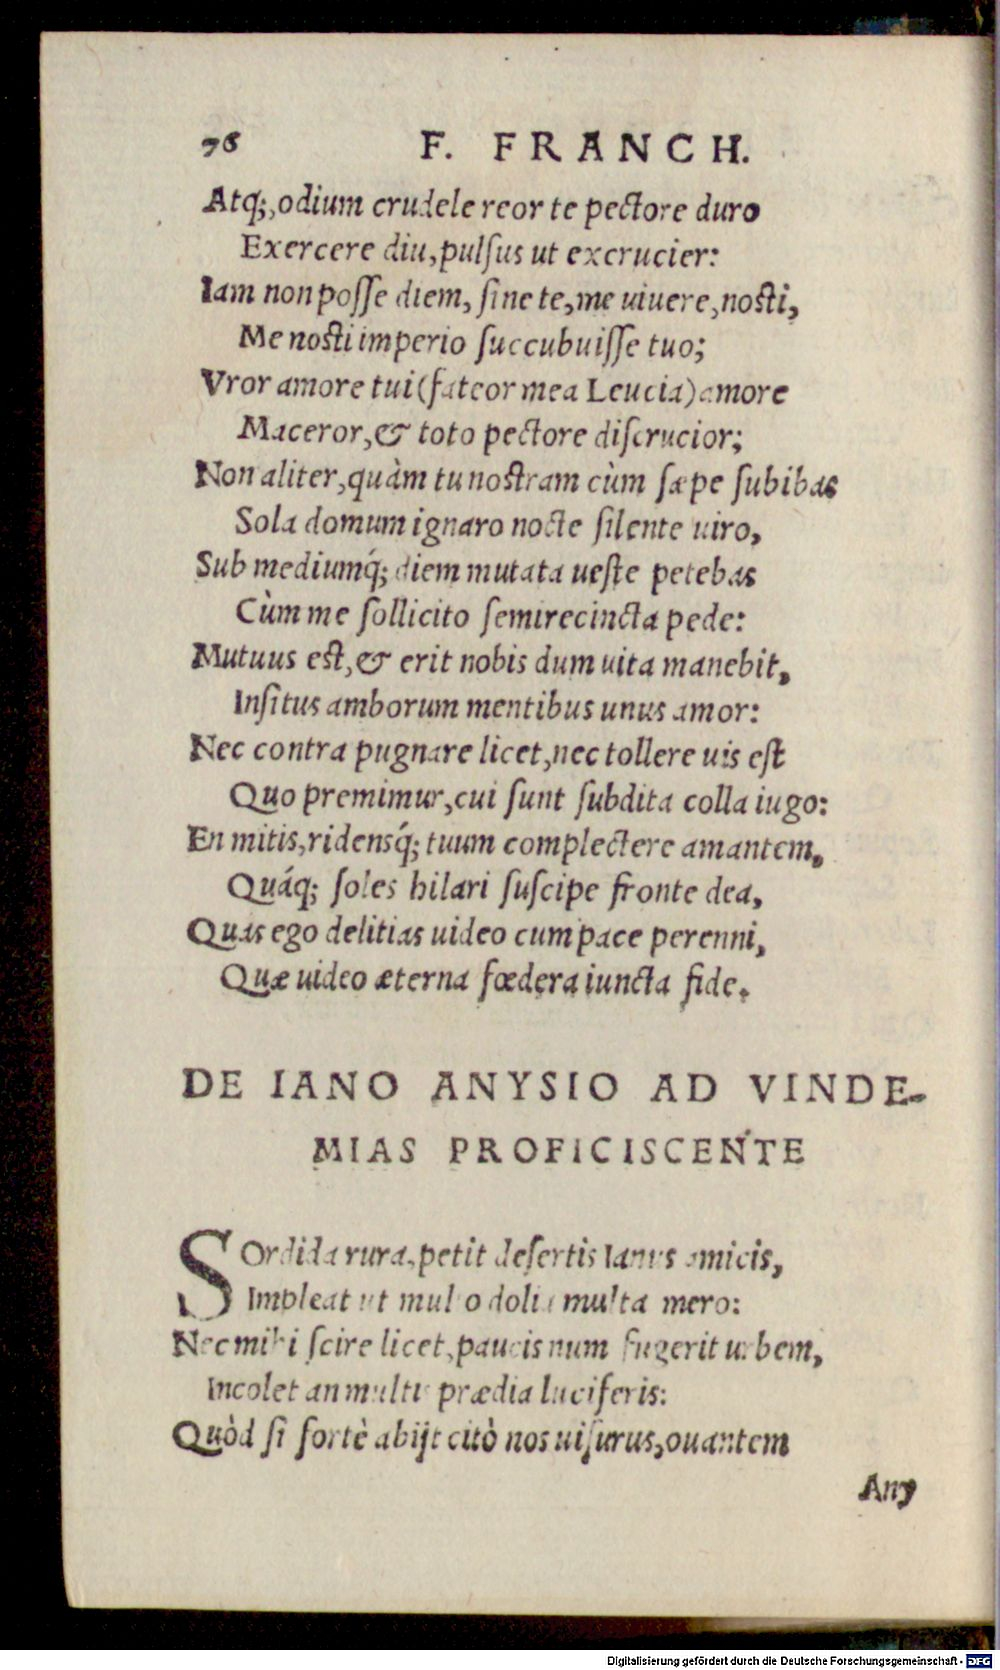 76 F. FRANCH.
Atq́;, odium crudele reor te pectore duro
Exercere diu, pulſus ut excrucier:
Iam non poſſe diem, ſine te, me uiuere, noſti,
Me noſti imperio ſuccubuiſſe tuo;
Vror amore tui (fateor mea Leucia) amore
Maceror, & toto pectore diſcrucior;
Non aliter, quàm tu noſtram cùm ſæpe ſubibas
Sola domum ignaro nocte ſilente uiro,
Sub mediumq́; diem mutata ueſte petebas
Cùm me ſollicito ſemirecincta pede:
Mutuus eſt, & erit nobis dum uita manebit,
Inſitus amborum mentibus unus amor:
Nec contra pugnare licet, nec tollere uis eſt
Quo premimur, cui ſunt ſubdita colla iugo:
En mitis, ridensq́; tuum complectere amantem,
Quáq; ſoles hilari ſuſcipe fronte dea,
Quas ego delitias uideo cum pace perenni,
Quæ uideo æterna fœdera iuncta fide.
DE IANO ANYSIO AD VINDE-
MIAS PROFICISCENTE
SOrdida rura, petit deſertis Ianus amicis,
Impleat ut multo dolia multa mero:
Nec mihi ſcire licet, paucis num fugerit urbem,
Incolet an multis prædia luciferis:
Quòd ſi fortè abijt citò nos uiſurus, ouantem
Any
Digitalisierung gefördert durch die Deutsche Forschungsgemeinschaft - DFG